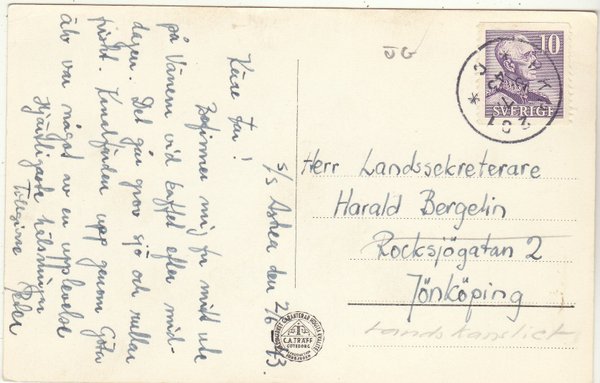 s/s Astrea den 2/6 43.
Käre Far!
Befinner mig nu mitt ute
på Vänern vid kaffet efter mid-
dagen. Det går grov sjö och rullar
friskt. Kanalfärden upp genom Göta
älv var något av en upplevelse
Hjärtligaste hälsningar
Tillgivne Peter
JG
10
SVERIGE
Herr Landssekreterare
Harald Bergelin
Rocksjögatan 2
Jönköping
Landskansliet
C.A. TRÄFF
GÖTEBORG